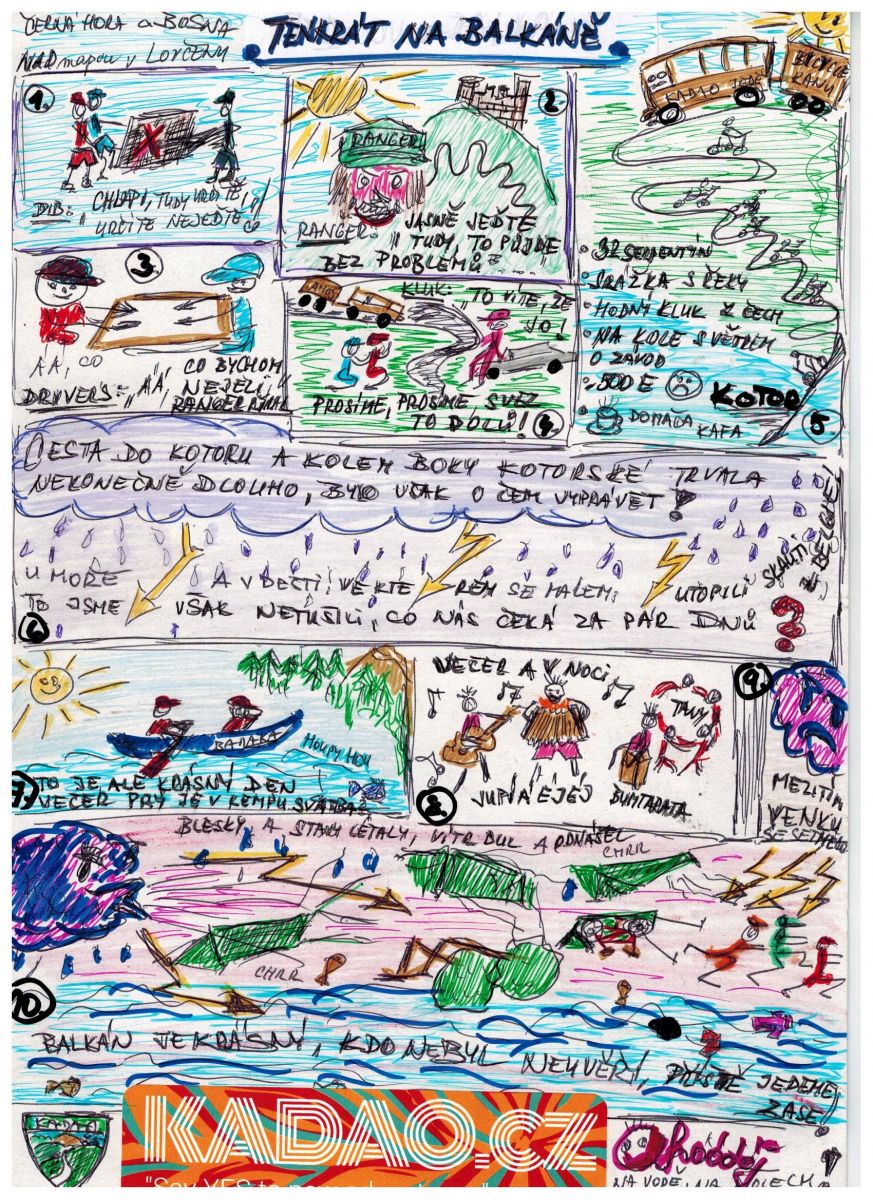 ČERNÁ HORA a BOSNA
NAD mapou v LOVČENU
TENKRÁT NA BALKÁNĚ
1.
CHLAPI, TUDY URČITĚ,
URČITĚ NEJEĎTE!
2.
RANGER
RANGER: "JASNĚ JEĎTE
TUDY, TO PŮJDE
BEZ PROBLÉMŮ"
3.
AÁ, CO
DRYVERS: "AÁ, CO BYCHOM
NEJELI,"
RANGER
4.
KLUK: "TO VÍTE, ŽE
JO!
PROSÍME, PROSÍME, SVEZ
TO DOLŮ!
KADAO JEDE
BICYCLE
KANU
32 SERPENTÝN
SRÁŽKA S ŘEKY
HODNÝ KLUK Z ČECH
NA KOLE S VĚTREM
O ZÁVOD
500 E
KOTOR
DOMAČA
KAFA
5.
CESTA DO KOTORU A KOLEM BOKY KOTORSKÉ TRVALA
NEKONEČNĚ DLOUHO, BYLO VŠAK O ČEM VYPRÁVĚT!
U MOŘE A V DEŠTI, VE KTERÉM SE MÁLEM UTOPILI SKAUTI Z BELGIE!
TO JSME VŠAK NETUŠILI, CO NÁS ČEKÁ ZA PÁR DNŮ
?
6.
BAJAKA
HOUPY HOU
7.
TO JE ALE KRÁSNÝ DEN
VEČER PRÝ JE V KEMPU SVATBA
VEČER A V NOCI
TANY
8.
JUPÍÁ ÉJÉJ
BUMTARATA
9.
MEZITÍM
VENKU
BLESKY A STANY LÉTALY, VÍTR DUL A ODNÁŠEL
CHRR
CHRR
10.
BALKÁN JE KRÁSNÝ, KDO NEBYL NEUVĚŘÍ, PŘÍŠTĚ JEDEME
ZASE!
KADAO
KADAO.CZ
NA VODĚ, NA KOLECH